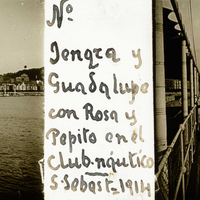 Nº
Jenara y
Guadalupe
con Rosa y
Pepito en el
Club-náutico
S-Sebast-1914